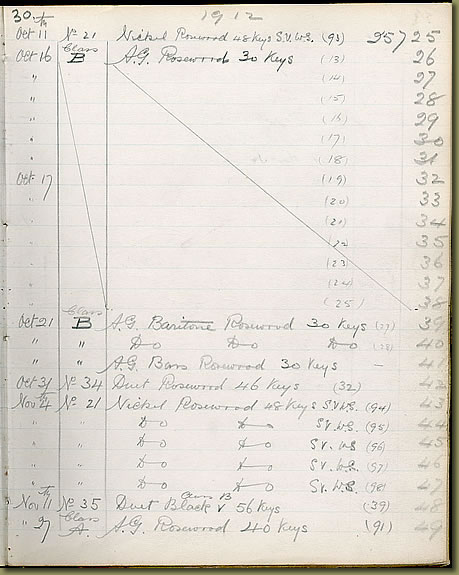 30th 1912
Oct 11 No 21 Nickel Rosewood 48 Keys S.V.W.S. (93) 25725
Oct 16 Class B A.G. Rosewood 30 Keys (13) 26
" (14) 27
" (15) 28
" (16) 29
" (17) 30
" (18) 31
Oct 17 (19) 32
" (20) 33
" (21) 34
" 22 35
" (23) 36
" (24) 37
" (25) 38
Oct 21 Class B A.G. Baritone Rosewood 30 Keys (27) 39
" " Do Do Do (28) 40
" " A.G. Bass Rosewood 30 Keys – 41
Oct 31 No 34 Duet Rosewood 46 Keys (32) 42
Nov 4 No 21 Nickel Rosewood 48 Keys S.V.W.S. (94) 43
" " Do Do SV.W.S. (95) 44
" " Do Do SV.WS (96) 45
" " Do Do SV.WS. (97) 46
" " Do Do SV.WS. (98) 47
Nov 11th No 35 Duet Black Class B v 56 Keys (39) 48
" 27 Class A. A.G. Rosewood 40 Keys (91) 49